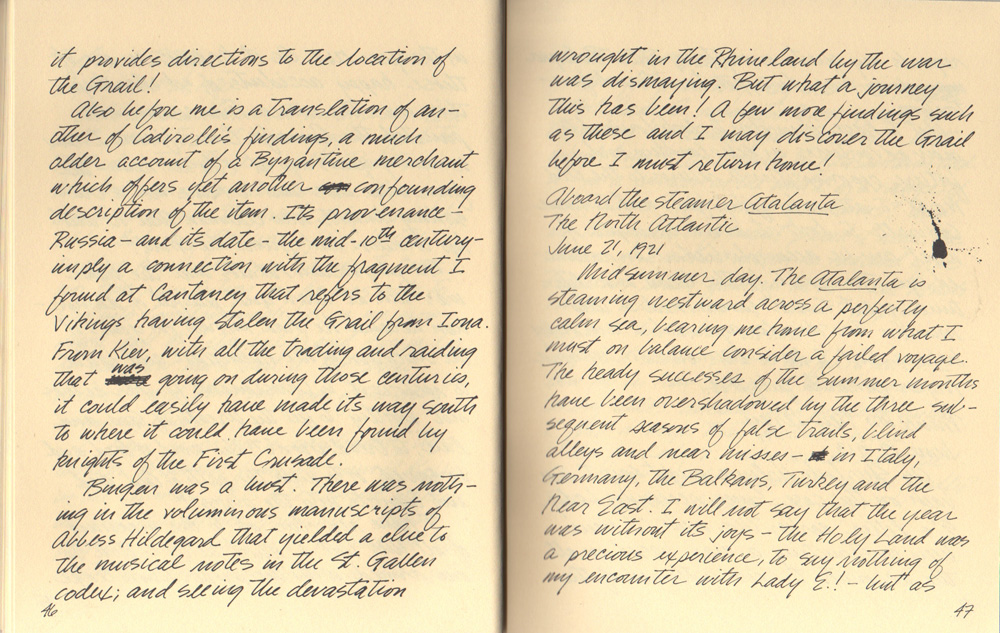 it provides directions to the location of
the Grail!
Also before me is a translation of an-
other of Codirolli's findings, a much
older account of a Byzantine merchant
which offers yet another confounding
description of the item. Its provenance -
Russia - and its date - the mid-10th century -
imply a connection with the fragment I
found at Cantaney that refers to the
Vikings having stolen the Grail from Iona.
From Kiev, with all the trading and raiding
that was going on during those centuries,
it could easily have made its way south
to where it could have been found by
knights of the First Crusade.
Bingen was a bust. There was noth-
ing in the voluminous manuscripts of
Abbess Hildegard that yielded a clue to
the musical notes in the St. Gallen
codex; and seeing the devastation
46
wrought in the Rhineland by the war
was dismaying. But what a journey
this has been! A few more findings such
as these and I may discover the Grail
before I must return home!
Aboard the steamer Atalanta
The North Atlantic
June 21, 1921
Midsummer day. The Atalanta is
steaming westward across a perfectly
calm sea, bearing me home from what I
must on balance consider a failed voyage.
The heady successes of the summer months
have been overshadowed by the three sub-
sequent seasons of false trails, blind
alleys and near misses - in Italy,
Germany, the Balkans, Turkey and the
Near East. I will not say that the year
was without its joys - the Holy Land was
a precious experience, to say nothing of
my encounter with Lady E.! - but as
47